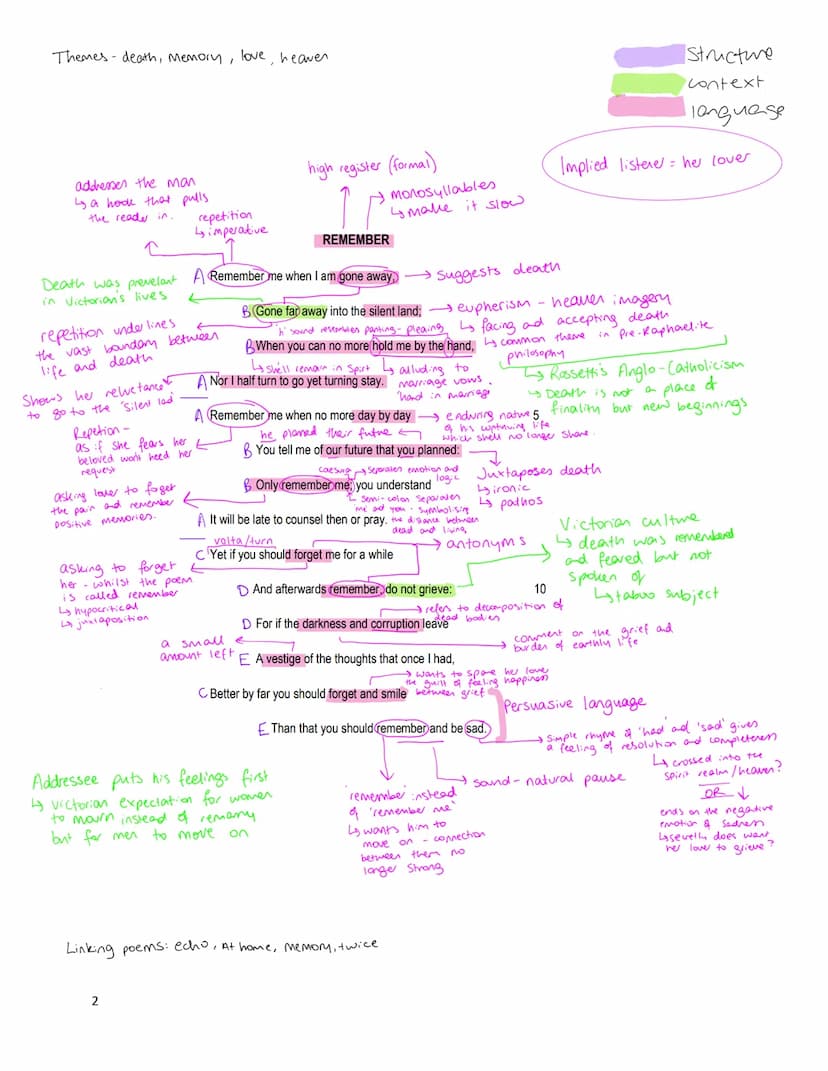 Themes - death, memory, love, heaven
Structure
context
language
Implied listener = her lover
high register (formal)
monosyllables
↳ make it slow
addresses the man
↳ a hook that pulls
the reader in.
repetition
↳ imperative
REMEMBER
A Remember me when I am gone away,
→ suggests death
Death was prevelant
in Victorian's lives
B Gone far away into the silent land;
→ eupherism - heaven imagery
↳ facing and accepting death
↳ common theme in pre-Raphaelite
philosophy
'h' sound resembles panting - pleaing
repetition underlines
the vast boundary between
life and death
B When you can no more hold me by the hand,
↳ she'll remain in spirit
↳ alluding to
marriage vows.
'hand in marriage'
A Nor I half turn to go yet turning stay.
↳ Rossetti's Anglo-Catholicism
↳ Death is not a place of
finality but new beginnings
Shows her reluctance
to go to the 'silent land'
A Remember me when no more day by day
5
→ enduring nature
of his continuing life
which she'll no longer share.
he planned their future
Repetion -
as if she fears her
beloved wont heed her
request
B You tell me of our future that you planned:
Juxtaposes death
↳ ironic
↳ pathos
caesura → separates emotion and
logic
B Only remember me; you understand
↳ semi-colon separates
me and you - symbolising
the distance between
dead and living
asking lover to forget
the pain and remember
positive memories.
A It will be late to counsel then or pray.
volta/turn
C Yet if you should forget me for a while
→ antonyms
Victorian culture
↳ death was remembered
and feared but not
spoken of
↳ taboo subject
asking to forget
her - whilst the poem
is called remember
↳ hypocritical
↳ juxtaposition
D And afterwards remember, do not grieve:
10
→ refers to decomposition of
dead bodies
D For if the darkness and corruption leave
→ comment on the grief and
burden of earthly life
a small
amount left
E A vestige of the thoughts that once I had,
→ wants to spare her love
the guilt of feeling happiness
between grief
C Better by far you should forget and smile
Persuasive language
E Than that you should remember and be sad.
→ simple rhyme of 'had' and 'sad' gives
a feeling of resolution and completeness
↳ crossed into the
spirit realm/heaven?
OR
ends on the negative
emotion of sadness
does want
her lover to grieve?
→ sound - natural pause
'remember' instead
of 'remember me'
↳ wants him to
move on - connection
between them no
longer strong
Addressee puts his feelings first
↳ Victorian expectation for women
to mourn instead of remarry
but for men to move on
Linking poems: echo, At home, memory, twice
2